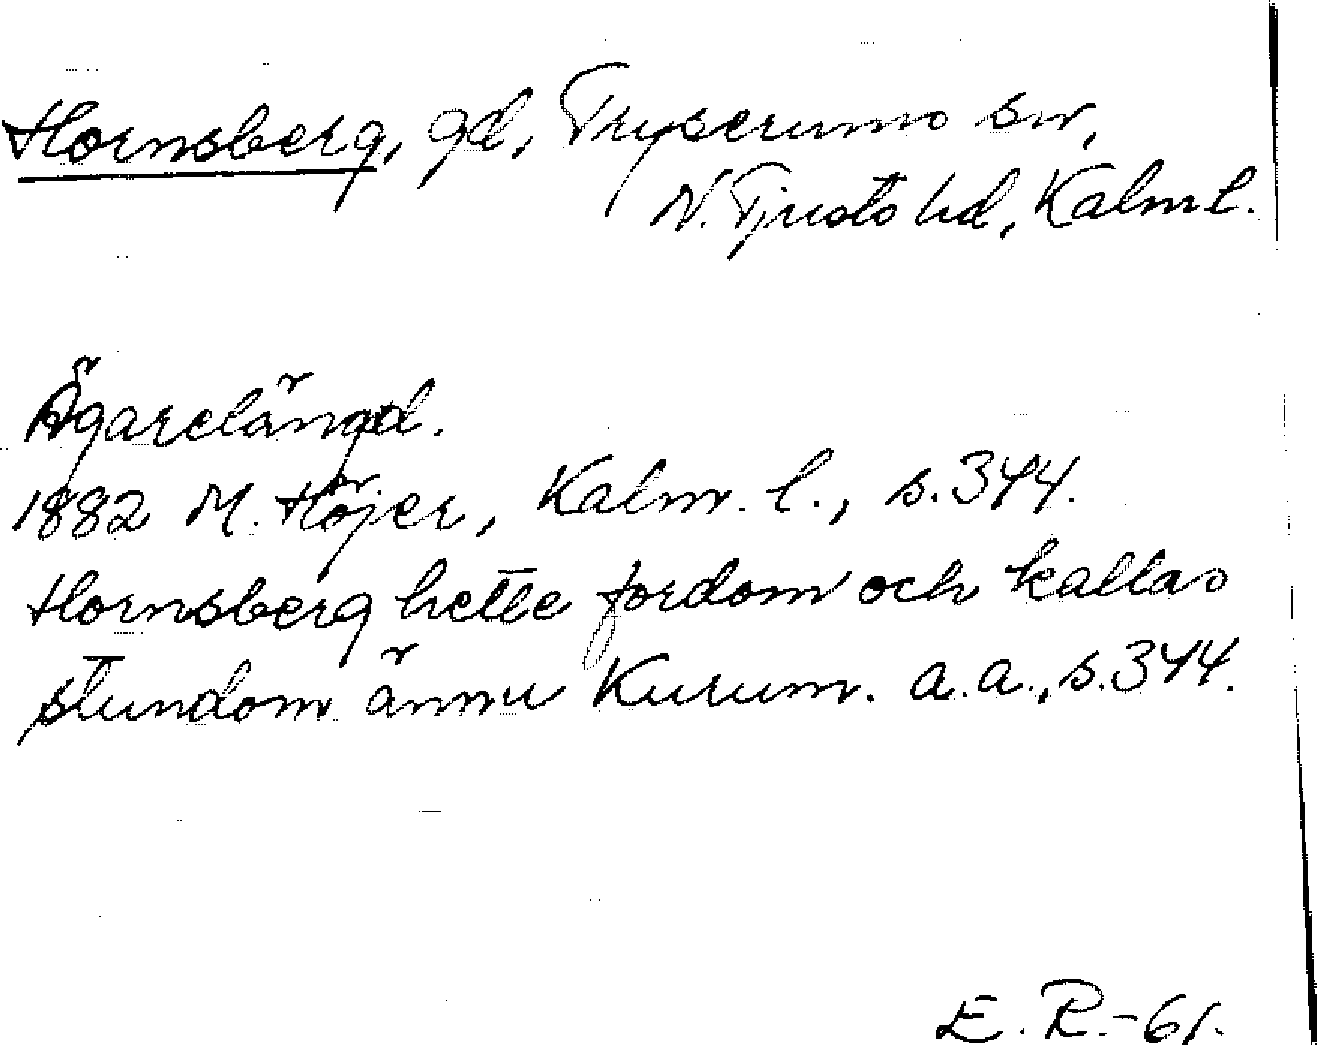 Hornsberg, gd, Tryserums sn,
N. Tjusts hd, Kalm l.
Ägarelängd.
1882 M. Höjer, Kalm. l., s. 344.
Hornsberg hette fordom och kallas
stundom ännu Kurum. a.a., s. 344.
E. R. -61.